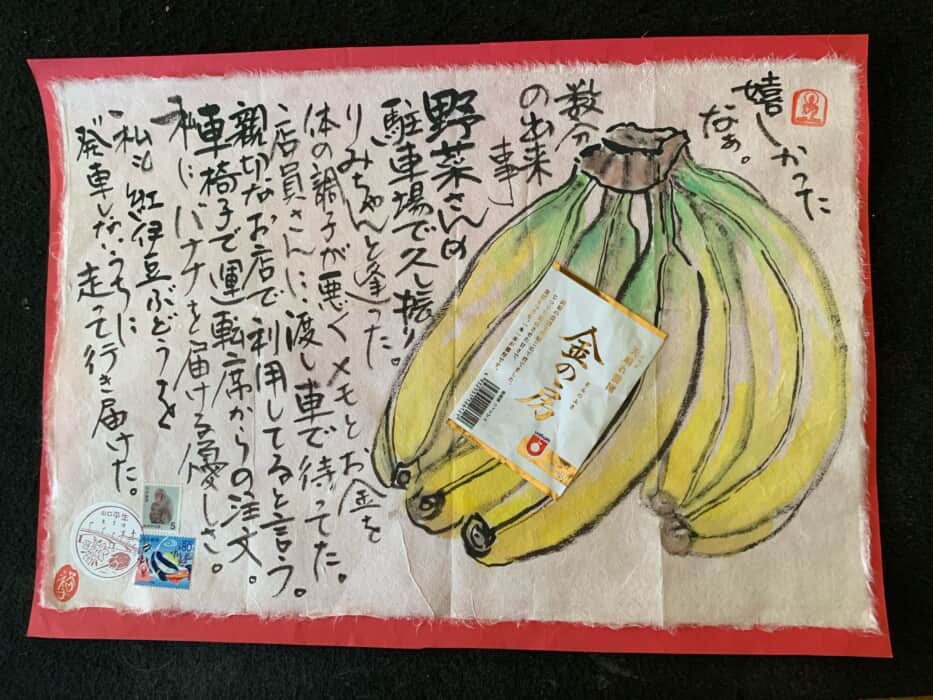 嬉しかった
なぁ。
数分
の出来
事
野菜さんの
駐車場で久し振り
りみちゃんと逢った。
体の調子が悪くメモとお金を
店員さんに渡し車で待ってた。
親切なお店で利用してると言う。
車椅子で運転席からの注文。
私にバナナを届ける優しさ。
私も紅伊豆ぶどうを
発車しないうちに
走って行き届けた。
金の房
5
80